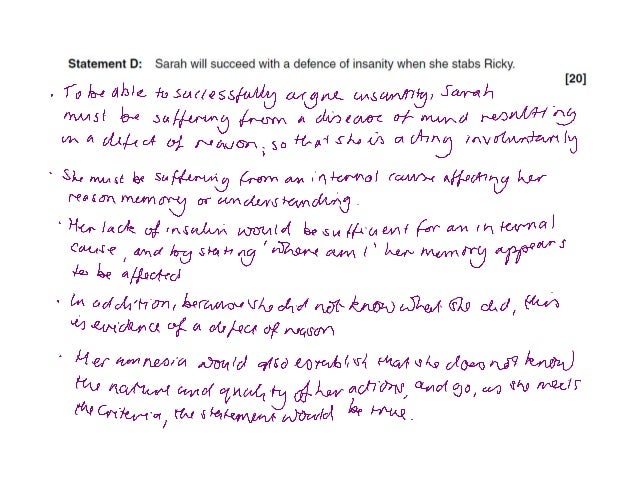 Statement D: Sarah will succeed with a defence of insanity when she stabs Ricky.
[20]
• To be able to successfully argue insanity, Sarah
must be suffering from a disease of mind resulting
in a defect of reason, so that she is acting involuntarily
• She must be suffering from an internal cause affecting her
reason memory or understanding.
• Her lack of insulin would be sufficient for an internal
cause, and by stating 'where am I' her memory appears
to be affected
• In addition, because she did not know what she did, this
is evidence of a defect of reason
• Her amnesia would also establish that she does not know
the nature and quality of her actions, and so, as she meets
the criteria, the statement would be true.